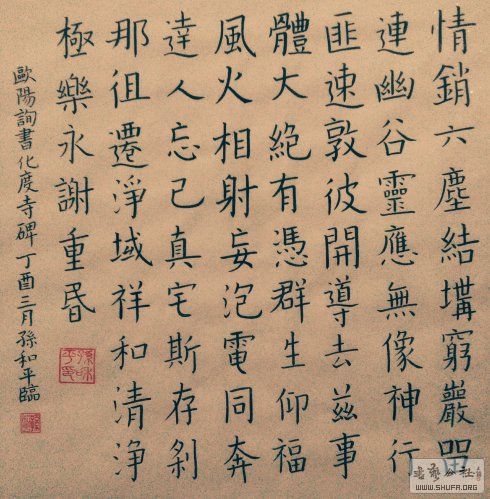 情銷六塵結構窮巖㽞
連幽谷靈應無像神行
匪速敦彼開導去茲事
體大絶有憑群生仰福
風火相射妄泡電同奔
達人忘己真宅斯存刹
那徂遷淨域祥和清浄
極樂永謝重昏
歐陽詢書化度寺碑丁酉三月孫和平臨
孫和平印
WWW.SHUFA.ORG